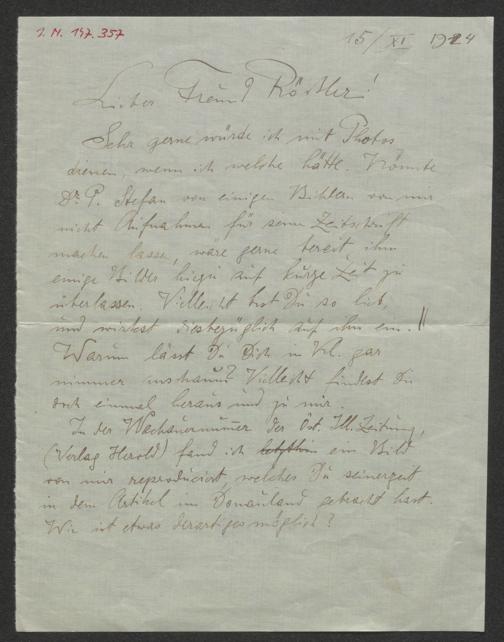 J. N. 147.357
15/XI 1924
Lieber Freund Rössler!
Sehr gerne würde ich mit Photos
dienen, wenn ich welche hätte. Könnte
Dr. P. Stefan von einigen Bildern von mir
nicht Aufnahmen für seine Zeitschrift
machen lassen, wäre gerne bereit, ihm
einige Bilder hiezu auf kurze Zeit zu
überlassen. Vielleicht bist Du so lieb,
und wirkst diesbezüglich auf ihn ein. ||
Warum lässt Du Dich in gar
nimmer anschaun? Vielleicht findest Du
doch einmal heraus und zu mir.
In der Wachauernummer der Öst. Ill. Zeitung,
(Verlag Herold) fand ich letzthin ein Bild
von mir reproduciert, welches Du seinerzeit
in dem Artikel im Donauland gebracht hast.
Wie ist etwas derartiges möglich?